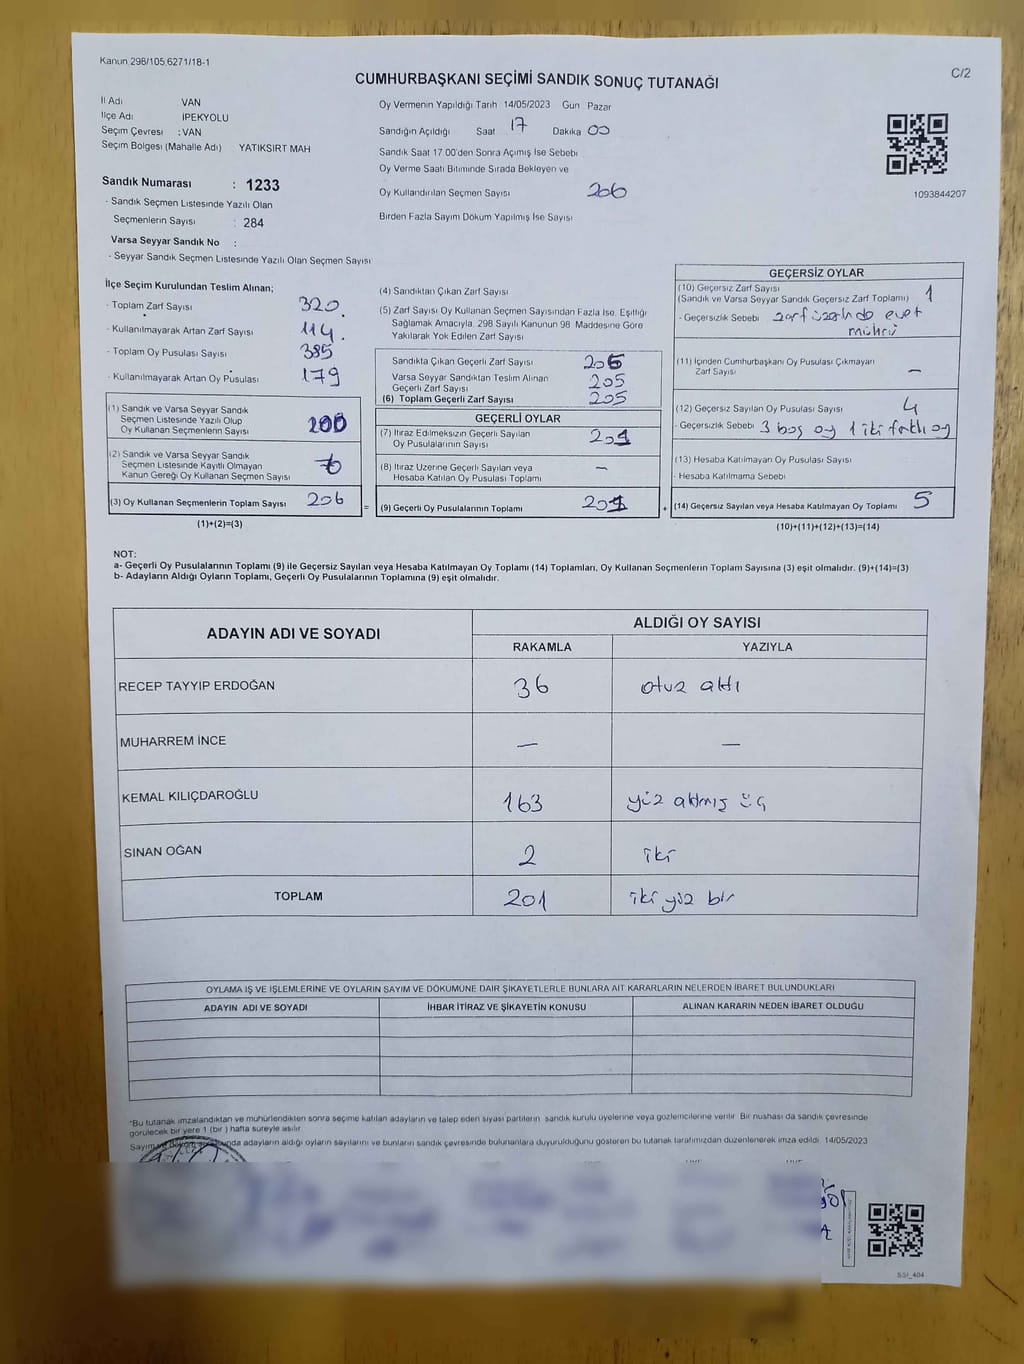 Kanun 298/105 6271/18-1
C/2
CUMHURBAŞKANI SEÇİMİ SANDIK SONUÇ TUTANAĞI
İl Adı VAN
İlçe Adı IPEKYOLU
Seçim Çevresi : VAN
Seçim Bölgesi (Mahalle Adı) YATIKSIRT MAH
Sandık Numarası : 1233
- Sandık Seçmen Listesinde Yazılı Olan
Seçmenlerin Sayısı : 284
Varsa Seyyar Sandık No :
- Seyyar Sandık Seçmen Listesinde Yazılı Olan Seçmen Sayısı
Oy Vermenin Yapıldığı Tarih 14/05/2023 Gün Pazar
Sandığın Açıldığı Saat 17 Dakika 00
Sandık Saat 17 00'den Sonra Açımış İse Sebebi
Oy Verme Saati Bitiminde Sırada Bekleyen ve
Oy Kullandırılan Seçmen Sayısı 206
Birden Fazla Sayım Döküm Yapılmış İse Sayısı
1093844207
İlçe Seçim Kurulundan Teslim Alınan;
- Toplam Zarf Sayısı 320
- Kullanılmayarak Artan Zarf Sayısı 114
- Toplam Oy Pusulası Sayısı 385
- Kullanılmayarak Artan Oy Pusulası 179
(1) Sandık ve Varsa Seyyar Sandık
Seçmen Listesinde Yazılı Olup
Oy Kullanan Seçmenlerin Sayısı
(2) Sandık ve Varsa Seyyar Sandık
Seçmen Listesinde Kayıtlı Olmayan
Kanun Gereği Oy Kullanan Seçmen Sayısı
(3) Oy Kullanan Seçmenlerin Toplam Sayısı 206
(1)+(2)=(3)
(4) Sandıktan Çıkan Zarf Sayısı
(5) Zarf Sayısı Oy Kullanan Seçmen Sayısından Fazla İse, Eşitliği
Sağlamak Amacıyla, 298 Sayılı Kanunun 98 Maddesine Göre
Yakılarak Yok Edilen Zarf Sayısı
Sandıkta Çıkan Geçerli Zarf Sayısı 205
Varsa Seyyar Sandıktan Teslim Alınan
Geçerli Zarf Sayısı 205
(6) Toplam Geçerli Zarf Sayısı 205
GEÇERLİ OYLAR
(7) İtiraz Edilmeksizin Geçerli Sayılan
Oy Pusulalarının Sayısı 201
(8) İtiraz Üzerine Geçerli Sayılan veya
Hesaba Katılan Oy Pusulası Toplamı —
= (9) Geçerli Oy Pusulalarının Toplamı 201
GEÇERSİZ OYLAR
(10) Geçersiz Zarf Sayısı 1
(Sandık ve Varsa Seyyar Sandık Geçersiz Zarf Toplamı)
- Geçersizlik Sebebi zarf üzerinde evet
mührü
(11) İçinden Cumhurbaşkanı Oy Pusulası Çıkmayan
Zarf Sayısı —
(12) Geçersiz Sayılan Oy Pusulası Sayısı 4
- Geçersizlik Sebebi 3 boş oy 1 iki farklı oy
(13) Hesaba Katılmayan Oy Pusulası Sayısı
- Hesaba Katılmama Sebebi
+ (14) Geçersiz Sayılan veya Hesaba Katılmayan Oy Toplamı 5
(10)+(11)+(12)+(13)=(14)
NOT:
a- Geçerli Oy Pusulalarının Toplamı (9) ile Geçersiz Sayılan veya Hesaba Katılmayan Oy Toplamı (14) Toplamları, Oy Kullanan Seçmenlerin Toplam Sayısına (3) eşit olmalıdır. (9)+(14)=(3)
b- Adayların Aldığı Oyların Toplamı, Geçerli Oy Pusulalarının Toplamına (9) eşit olmalıdır.
ADAYIN ADI VE SOYADI
ALDIĞI OY SAYISI
RAKAMLA YAZIYLA
RECEP TAYYIP ERDOĞAN 36 otuz altı
MUHARREM İNCE — —
KEMAL KILIÇDAROĞLU 163 yüz altmış üç
SINAN OĞAN 2 iki
TOPLAM 201 iki yüz bir
OYLAMA İŞ VE IŞLEMLERINE VE OYLARIN SAYIM VE DÖKÜMÜNE DAIR ŞIKAYETLERLE BUNLARA AIT KARARLARIN NELERDEN İBARET BULUNDUKLARI
ADAYIN ADI VE SOYADI İHBAR İTİRAZ VE ŞİKAYETİN KONUSU ALINAN KARARIN NEDEN İBARET OLDUĞU
*Bu tutanak imzalandıktan ve mühürlendikten sonra seçime katılan adayların ve talep eden siyasi partilerin sandık kurulu üyelerine veya gözlemcilerine verilir. Bir nushası da sandık çevresinde
görülecek bir yere 1 (bir ) hafta süreyle asılır.
Sayım ve döküm sonunda adayların aldığı oyların sayılarını ve bunların sandık çevresinde bulunanlara duyurulduğunu gösteren bu tutanak tarafımızdan düzenlenerek imza edildi. 14/05/2023
SSI_404